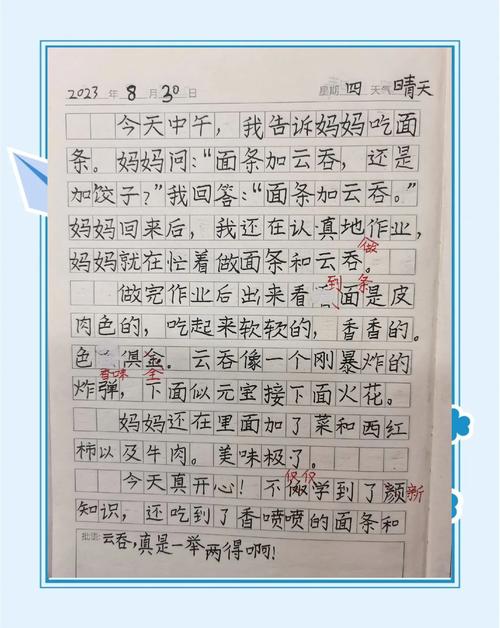 2023 年 8 月 30 日 星期 四 天气 晴天
今天中午，我告诉妈妈吃面
条。妈妈问：“面条加云吞，还是
加饺子？”我回答：“面条加云吞。”
妈妈回来后，我还在认真地作业，
做
妈妈就在忙着做面条和云吞。
到 条
做完作业后出来看面是皮
肉色的，吃起来软软的，香香的。
色俱金。云吞像一个刚暴炸的
香味 全
炸弹，下面似元宝接下面火花。
妈妈还在里面加了菜和西红
柿以及牛肉。美味极了。
仅仅
今天真开心！不学到了颜新
知识，还吃到了香喷喷的面条和
批语：云吞，真是一举两得啊！